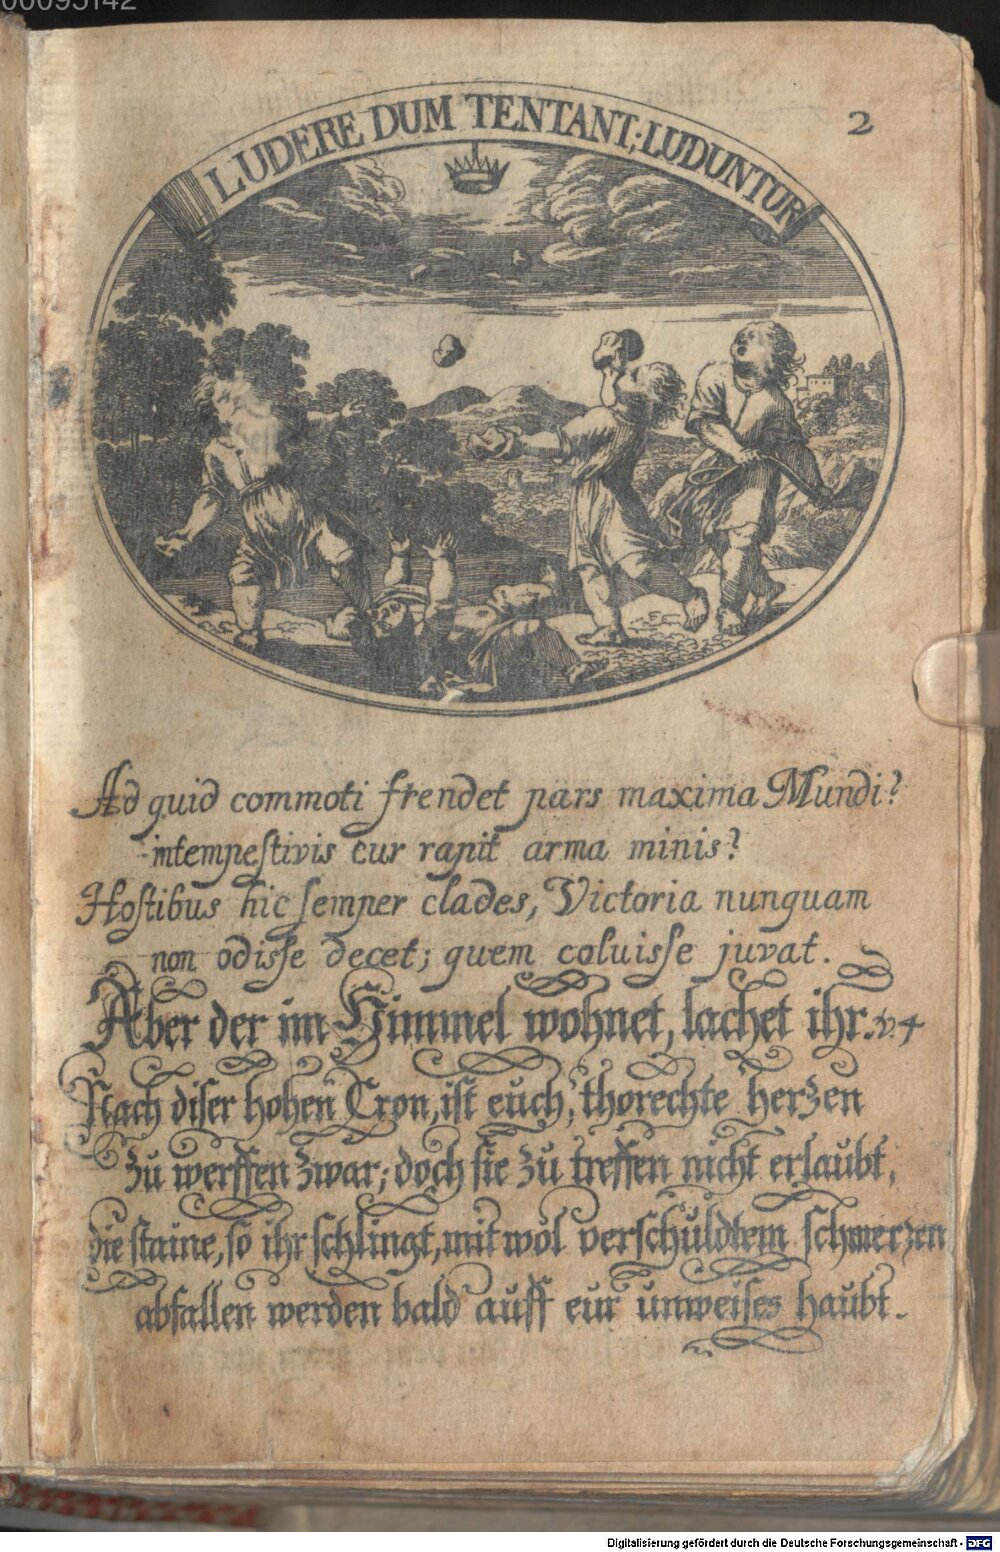 00095142
2
LUDERE DUM TENTANT; LUDUNTUR
Ad quid commoti frendet pars maxima Mundi?
intempeſtivis cur rapit arma minis?
Hoſtibus hic ſemper clades, Victoria nunquam
non odiſſe decet; quem coluiſſe juvat.
Aber der im Himmel wohnet, lachet ihr. v. 4
Nach diſer hohen Cron, iſt euch, thorechte herzen
Zu werffen zwar; doch ſie zu treffen nicht erlaubt,
die ſtaine, ſo ihr ſchlingt, mit wol verſchuldtem ſchmerzen
abfallen werden bald auff eur unweiſes haubt.
Digitalisierung gefördert durch die Deutsche Forschungsgemeinschaft - DFG